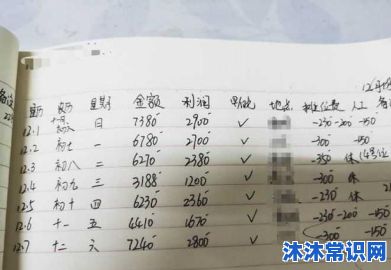 12月
農历 星期 金额 利润 地点 摊位费 人工
12.1 十一月初六 日 7380 2900 ✓ -230-200 -150
12.2 初七 一 6780 2700 ✓ -300 -150
12.3 初八 二 6270 2380 ✓ -350 休
12.4 初九 三 3188 1200 ✓ -300 休
12.5 初十 四 6230 2360 ✓ -230 休
12.6 十一 五 4410 1670 ✓ -230-200 -150
12.7 十二 六 7240 2800 ✓ -300 -150
沐沐常识网